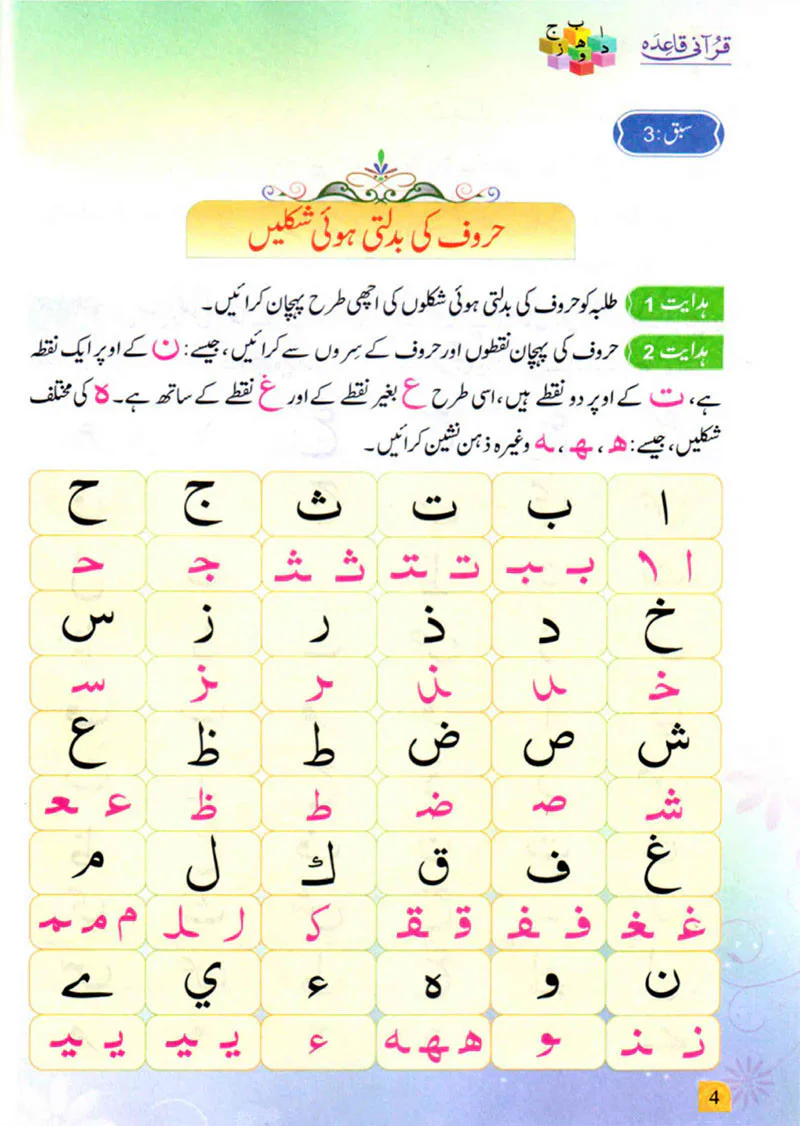 ا ب ج د ه و ز
قرآنی قاعدہ
سبق: 3
حروف کی بدلتی ہوئی شکلیں
ہدایت 1 طلبہ کو حروف کی بدلتی ہوئی شکلوں کی اچھی طرح پہچان کرائیں۔
ہدایت 2 حروف کی پہچان نقطوں اور حروف کے سِروں سے کرائیں، جیسے: ن کے اوپر ایک نقطہ
ہے، ت کے اوپر دو نقطے ہیں، اسی طرح ع بغیر نقطے کے اور غ نقطے کے ساتھ ہے۔ ہ کی مختلف
شکلیں، جیسے: ھ، ہـ، ـہ وغیرہ ذہن نشین کرائیں۔
ا ب ت ث ج ح
ا ـا بـ ـبـ تـ ـتـ ثـ ـثـ جـ حـ
خ د ذ ر ز س
خـ ـد ـذ ـر ـز سـ
ش ص ض ط ظ ع
شـ صـ ضـ ط ظ عـ ـعـ
غ ف ق ك ل م
غـ ـغـ فـ ـفـ قـ ـقـ کـ لـ ـلـ م مـ ـمـ
ن و ہ ء ي ے
نـ ـنـ ـو هـ ـهـ ـه ء یـ ـیـ یـ ـیـ
4